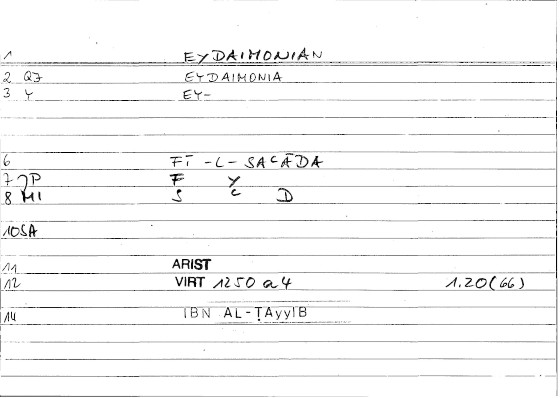 1 EYDAIMONIAN
2 QJ EYDAIMONIA
3 Y EY-
6 FĪ -L- SAʿĀDA
7 JP F Y
8 MI S ʿ D
10 SA
11 ARIST
12 VIRT 1250 a 4 1.20(66)
14 IBN AL-ṬAyyIB